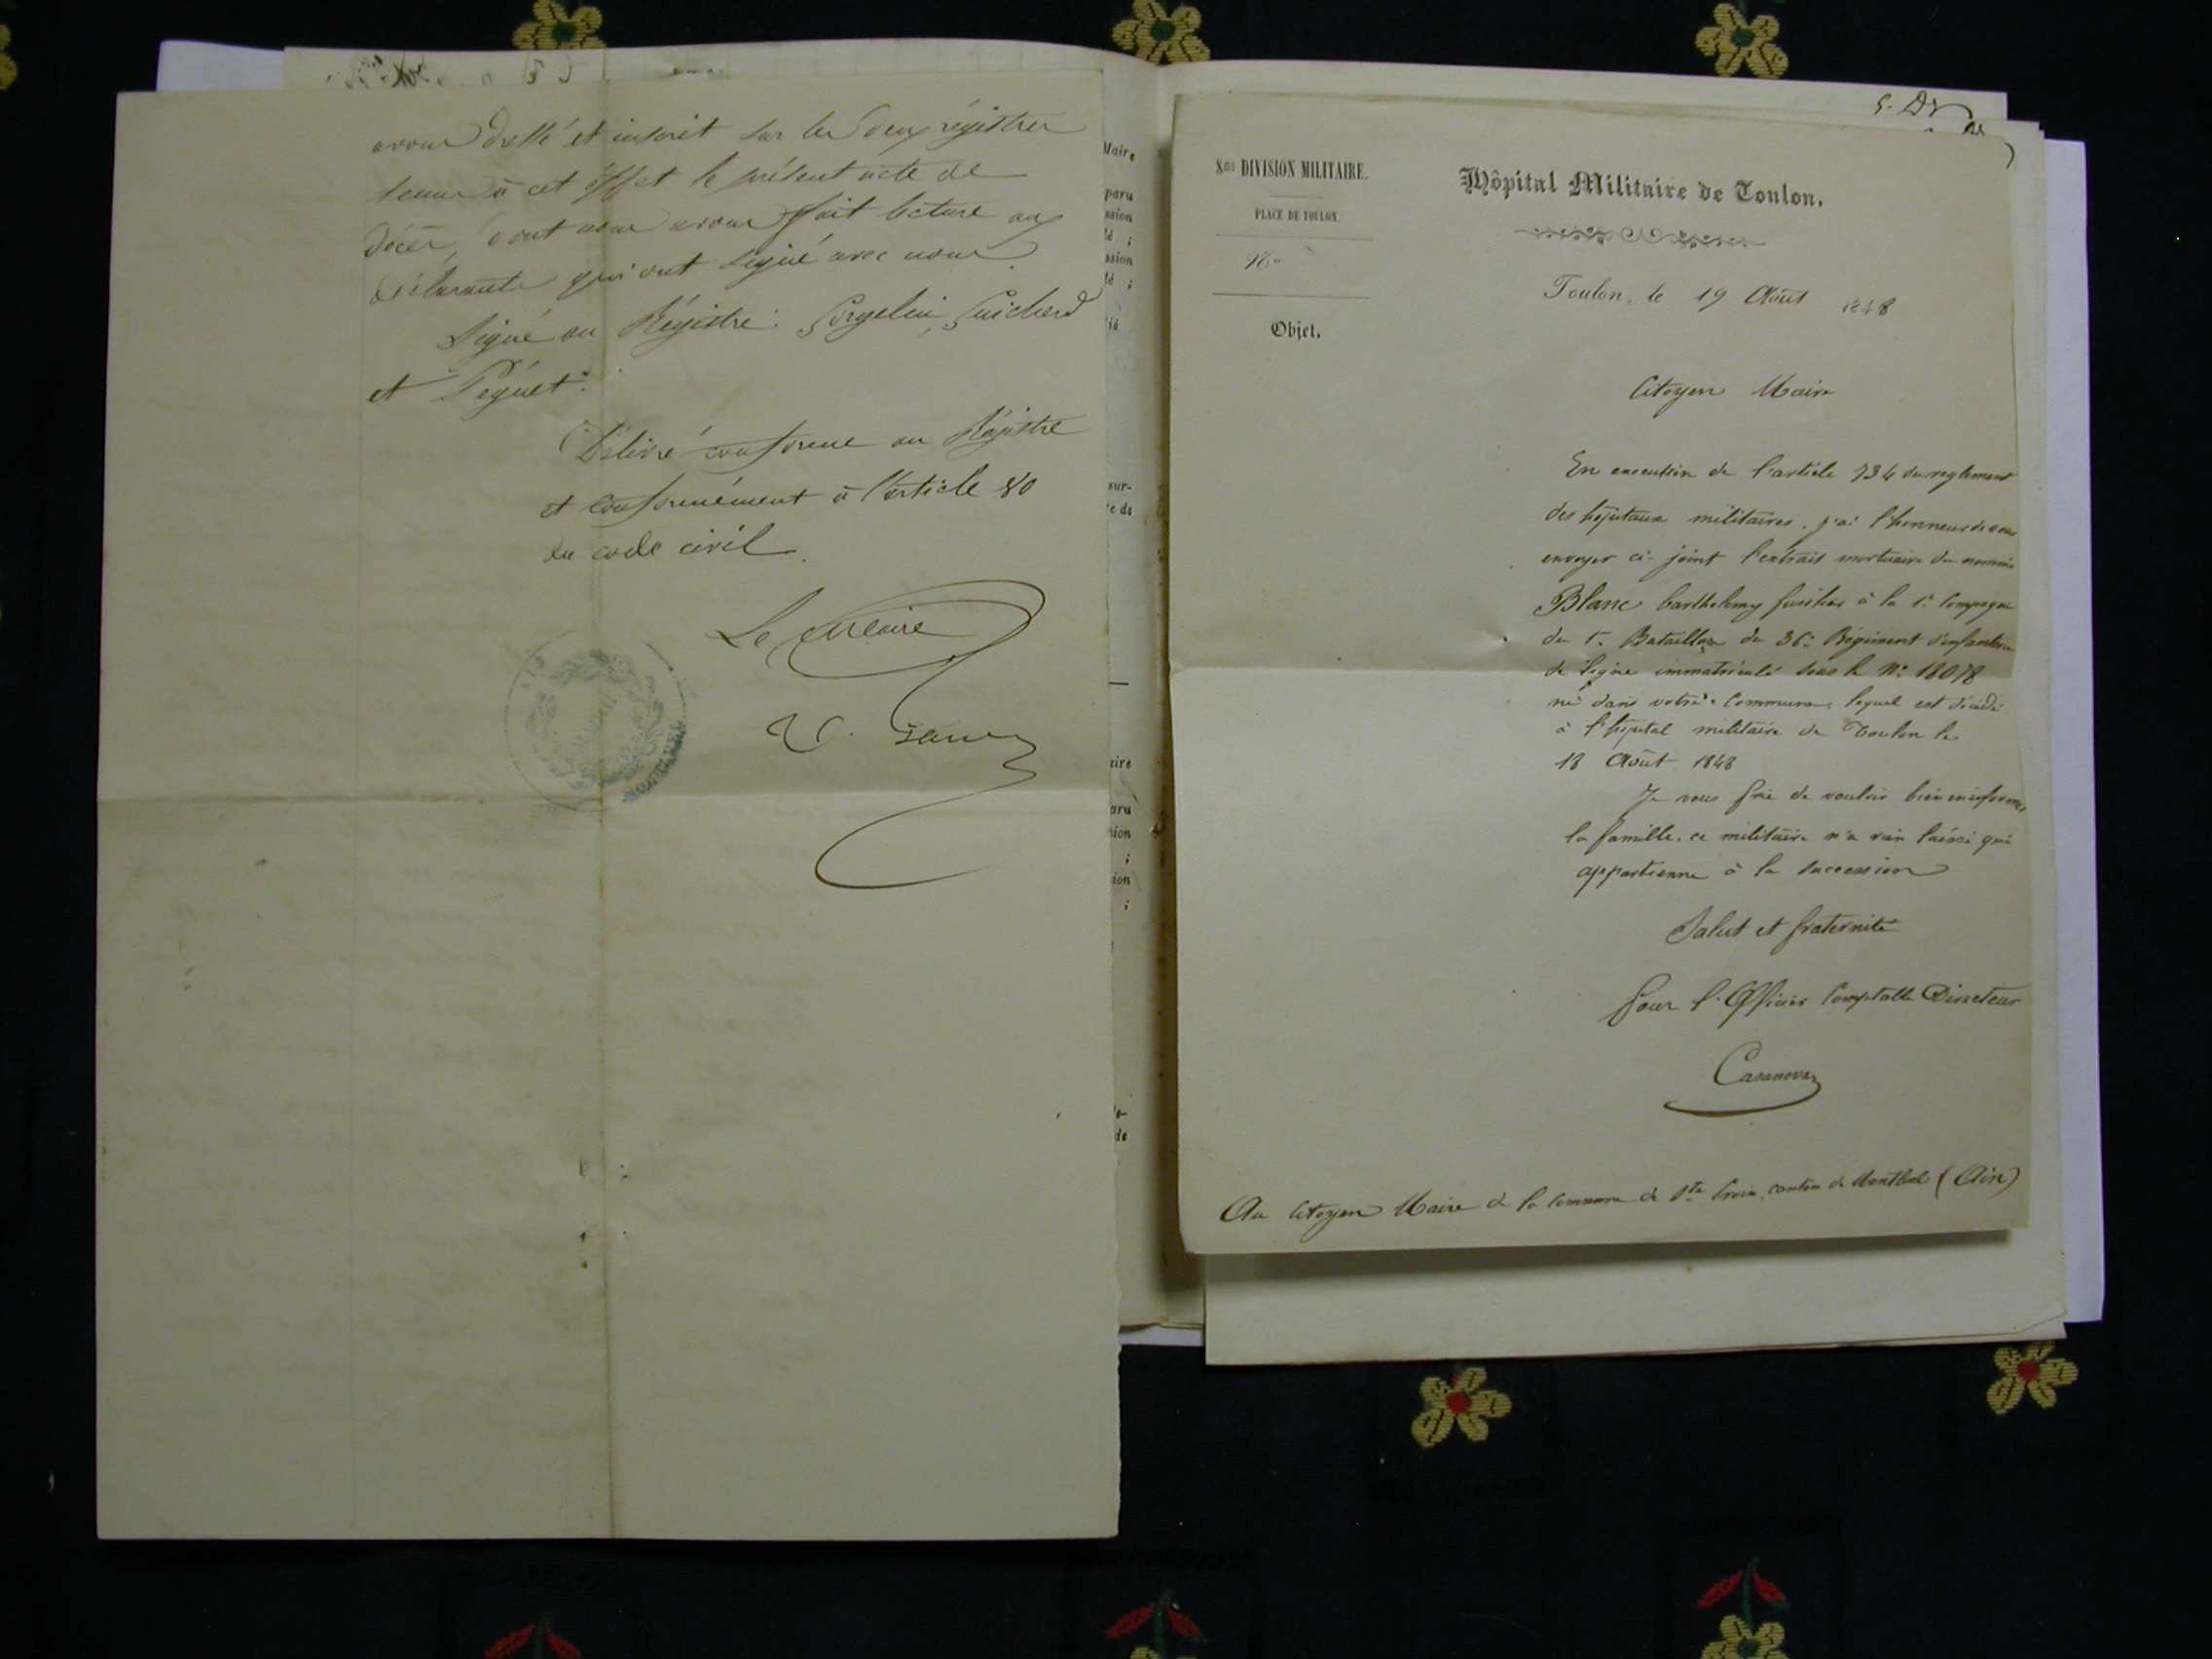 avons dressé et inscrit sur les deux régistres
tenus à cet éffet le présent acte de
décès, dont nous avons fait lecture aux
déclarants qui ont signé avec nous.
Signé au Régistre: Guichard
et Péquet.
Délivré conforme au Régistre
et conformément à l'article 80
du code civil.
Le Maire
8me DIVISION MILITAIRE.
PLACE DE TOULON.
No
Objet.
Hôpital Militaire de Toulon.
Toulon, le 19 Août 1848
Citoyen Maire
En execution de l'article 734 du reglement
des hôpitaux militaires, j'ai l'honneur de vous
envoyer ci-joint l'extrait mortuaire du nommé
Blanc barthelemy fusilier à la 1e Compagnie
du 1er Bataillon du 36e Régiment d'infanterie
de ligne immatriculé sous le No 18078
né dans votre Commune, lequel est décédé
à l'hôpital militaire de Toulon le
18 Août 1848
Je vous prie de vouloir bien en informer
la famille. ce militaire n'a rien laissé qui
appartienne à la succession
Salut et fraternité
Pour l'Officier Comptable Directeur
Casanova
Au Citoyen Maire de la Commune de Ste Croix, canton de Montluel (Ain)